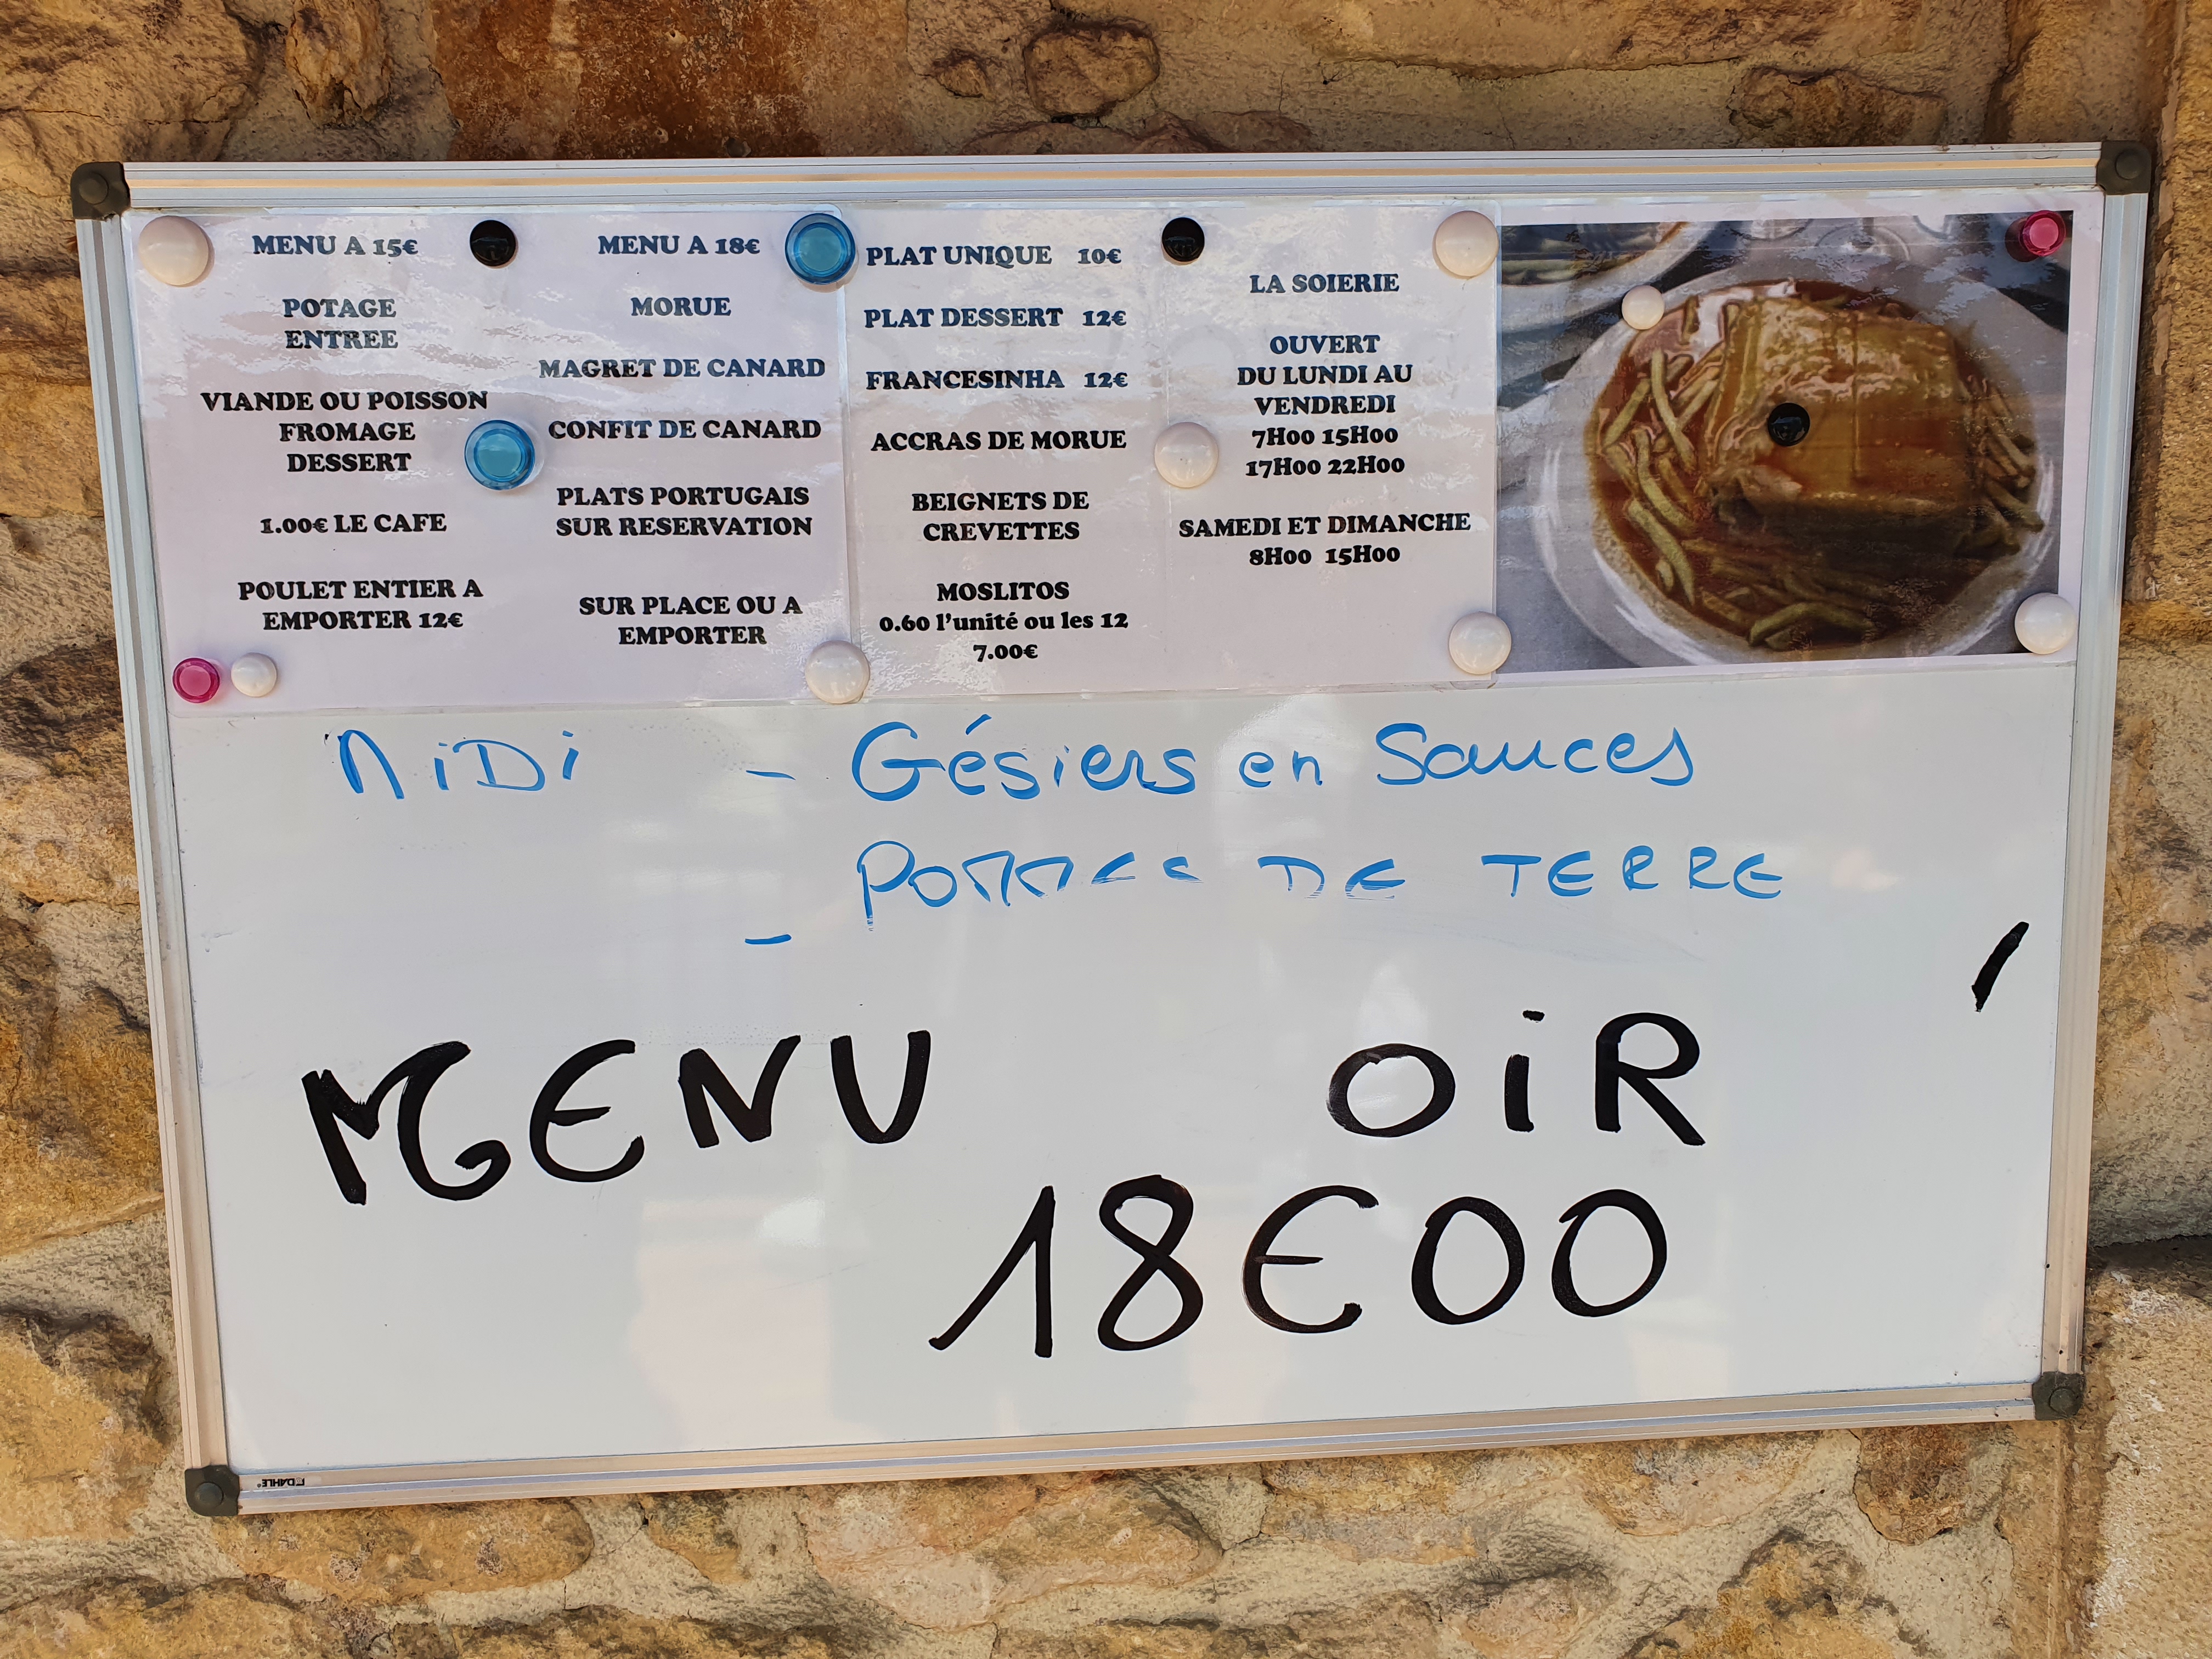 MENU A 15€
POTAGE
ENTREE
VIANDE OU POISSON
FROMAGE
DESSERT
1.00€ LE CAFE
POULET ENTIER A
EMPORTER 12€
MENU A 18€
MORUE
MAGRET DE CANARD
CONFIT DE CANARD
PLATS PORTUGAIS
SUR RESERVATION
SUR PLACE OU A
EMPORTER
PLAT UNIQUE 10€
PLAT DESSERT 12€
FRANCESINHA 12€
ACCRAS DE MORUE
BEIGNETS DE
CREVETTES
MOSLITOS
0.60 l'unité ou les 12
7.00€
LA SOIERIE
OUVERT
DU LUNDI AU
VENDREDI
7H00 15H00
17H00 22H00
SAMEDI ET DIMANCHE
8H00 15H00
MiDi - Gésiers en Sauces
- POMMES DE TERRE
MENU OiR
18€00
DAHLE